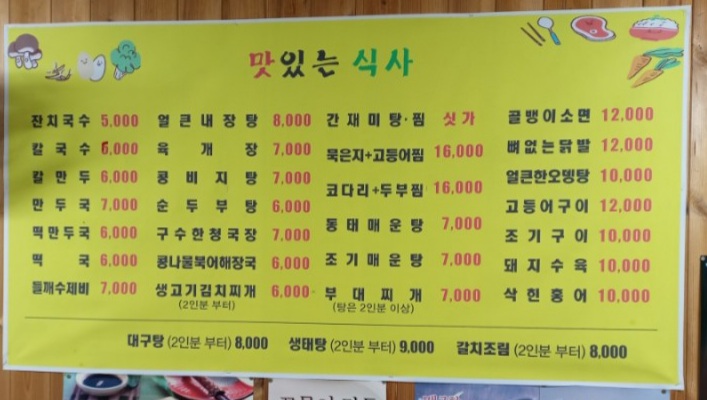 맛있는 식사
잔치국수 5,000
칼국수 6,000
칼만두 6,000
만두국 7,000
떡만두국 6,000
떡국 6,000
들깨수제비 7,000
얼큰내장탕 8,000
육개장 7,000
콩비지탕 7,000
순두부탕 6,000
구수한청국장 7,000
콩나물북어해장국 6,000
생고기김치찌개 6,000
(2인분 부터)
간재미탕·찜 싯가
묵은지+고등어찜 16,000
코다리+두부찜 16,000
동태매운탕 7,000
조기매운탕 7,000
부대찌개 7,000
(탕은 2인분 이상)
골뱅이소면 12,000
뼈없는닭발 12,000
얼큰한오뎅탕 10,000
고등어구이 12,000
조기구이 10,000
돼지수육 10,000
삭힌홍어 10,000
대구탕 (2인분 부터) 8,000 생태탕 (2인분 부터) 9,000 갈치조림 (2인분 부터) 8,000